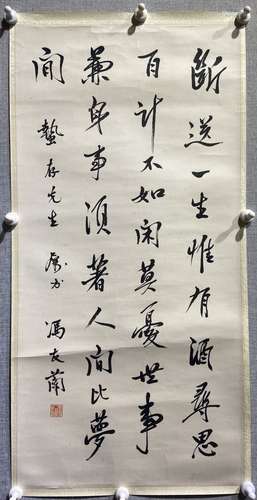 斷送一生惟有酒尋思
百計不如閑莫憂世事
兼身事須著人間比夢
間 蟄存先生 屬書 馮友蘭